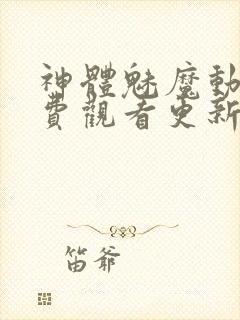 神體魅魔動
費觀看更新
笛爺